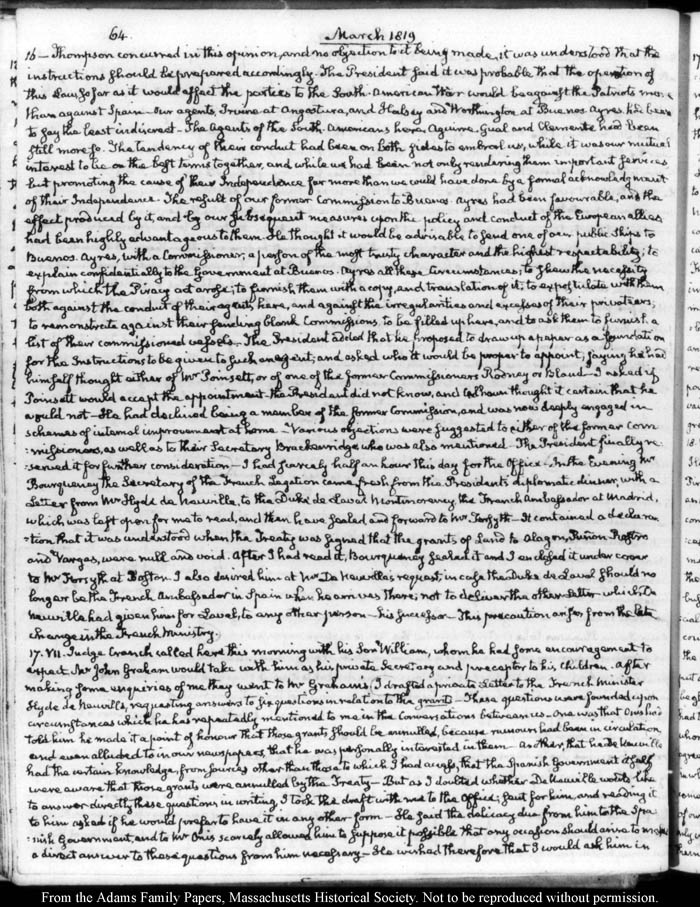 64.
March 1819
16 — Thompson concurred in this opinion, and no objection to it being made, it was understood that the
instructions should be prepared accordingly. The President said it was probable that the operation of
this Law so far as it would affect the parties to the South-American War would be against the Patriots more
than against Spain — Our agents, Irvine at Angostura, and Halsey and Worthington at Buenos Ayres had been
to say the least indiscreet — The Agents of the South-Americans here, Aguirre, Gual and Clemente had been
still more so. The tendency of their conduct had been on both sides to embroil us, while it was our mutual
interest to be on the best terms together, and while we had been not only rendering them important services
but promoting the cause of their Independence far more than we could have done by a formal acknowledgment
of their Independence. The result of our former Commission to Buenos-Ayres had been favourable, and the
effect produced by it, and by our subsequent measures upon the policy and conduct of the European allies
had been highly advantageous to them. He thought it would be advisable to send one of our public ships to
Buenos-Ayres, with a Commissioner; a person of the most trusty character and the highest respectability; to
explain confidentially to the Government at Buenos-Ayres all these circumstances; to shew the necessity
from which the Piracy act arose; to furnish them with a copy, and translation of it; to expostulate with them
both against the conduct of their agents here, and against the irregularities and excesses of their privateers;
to remonstrate against their sending blank Commissions, to be filled up here, and to ask them to furnish a
list of their commissioned vessels. The President added that he proposed to draw up a paper as a foundation
for the Instructions to be given to such an agent; and asked who it would be proper to appoint; saying he had
himself thought either of Mr Poinsett, or of one of the former Commissioners Rodney or Bland — I asked if
Poinsett would accept the appointment. The President did not know, and Calhoun thought it certain that he
would not — He had declined being a member of the former Commission, and was now deeply engaged in
schemes of internal improvement at home — Various objections were suggested to either of the former Com-
:missioners, as well as to their Secretary Brackenridge who was also mentioned — The President finally re-
:served it for further consideration — I had scarcely half an hour this day for the Office — In the Evening Mr
Bourqueney the Secretary of the French Legation came fresh from the President's diplomatic dinner, with a
Letter from Mr Hyde de Neuville, to the Duke de Laval Montmorency the French Ambassador at Madrid,
which was left open for me to read, and then have sealed and forward to Mr Forsyth — It contained a declara-
-tion that it was understood when the Treaty was signed that the grants of land to Alagon, Punon Rostro
and Vargas, were null and void. After I had read it, Bourqueney sealed it and I enclosed it under cover
to Mr Forsyth at Boston. I also desired him at Mr De Neuville's request, in case the Duke de Laval should no
longer be the French Ambassador in Spain when he arrives there, not to deliver the other letter which De
Neuville had given him for Laval, to any other person — his successor — This precaution arises from the late
change in the French Ministry.
17. VII. Judge Cranch called here this morning with his Son William, whom he had some encouragement to
expect Mr John Graham would take with him as his private Secretary and preceptor to his children. After
making some enquiries of me they went to Mr Graham's. I drafted a private Letter to the French Minister
Hyde de Neuville, requesting answers to six questions in relation to the grants — These questions were founded upon
circumstances which he has repeatedly mentioned to me in the Conversations between us. One was that Onis had
told him he made it a point of honour that those grants should be annulled, because rumours had been in circulation,
and even alluded to in our newspapers, that he was personally interested in them — Another, that he De Neuville
had the certain knowledge, from sources other than those to which I had access, that the Spanish Government itself
were aware that those grants were annulled by the Treaty — But as I doubted whether De Neuville would like
to answer directly these questions in writing, I took the draft with me to the Office; sent for him, and reading it
to him asked if he would prefer to have it in any other form — He said the delicacy due from him to the Spa-
:nish Government, and to Mr Onis scarcely allowed him to suppose it possible that any occasion should arise to make
a direct answer to these questions from him necessary — He wished therefore that I would ask him in
From the Adams Family Papers, Massachusetts Historical Society. Not to be reproduced without permission.